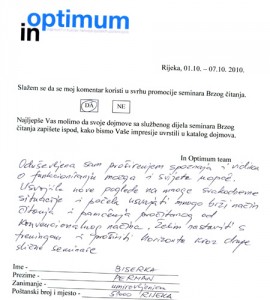 in optimum
Rijeka, 01.10. – 07.10. 2010.
Slažem se da se moj komentar koristi u svrhu promocije seminara Brzog čitanja.
DA NE
Najljepše Vas molimo da svoje dojmove sa službenog dijela seminara Brzog
čitanja zapišete ispod, kako bismo Vaše impresije uvrstili u katalog dojmova.
In Optimum team
Oduševljena sam proširenjem spoznaja i vidika
o funkcioniranju mozga i svijeta uopće.
Usvojila nove poglede na mnoge svakodnevne
situacije i počela usvajati mnogo brži način
čitanja i pamćenja pročitanog od
konvencionalnog načina. Želim nastaviti s
treningom i proširiti horizonte kroz druge
slične seminare
Ime - BISERKA
Prezime - PERMAN
Zanimanje - umirovljenica
Poštanski broj i mjesto - 51000 RIJEKA